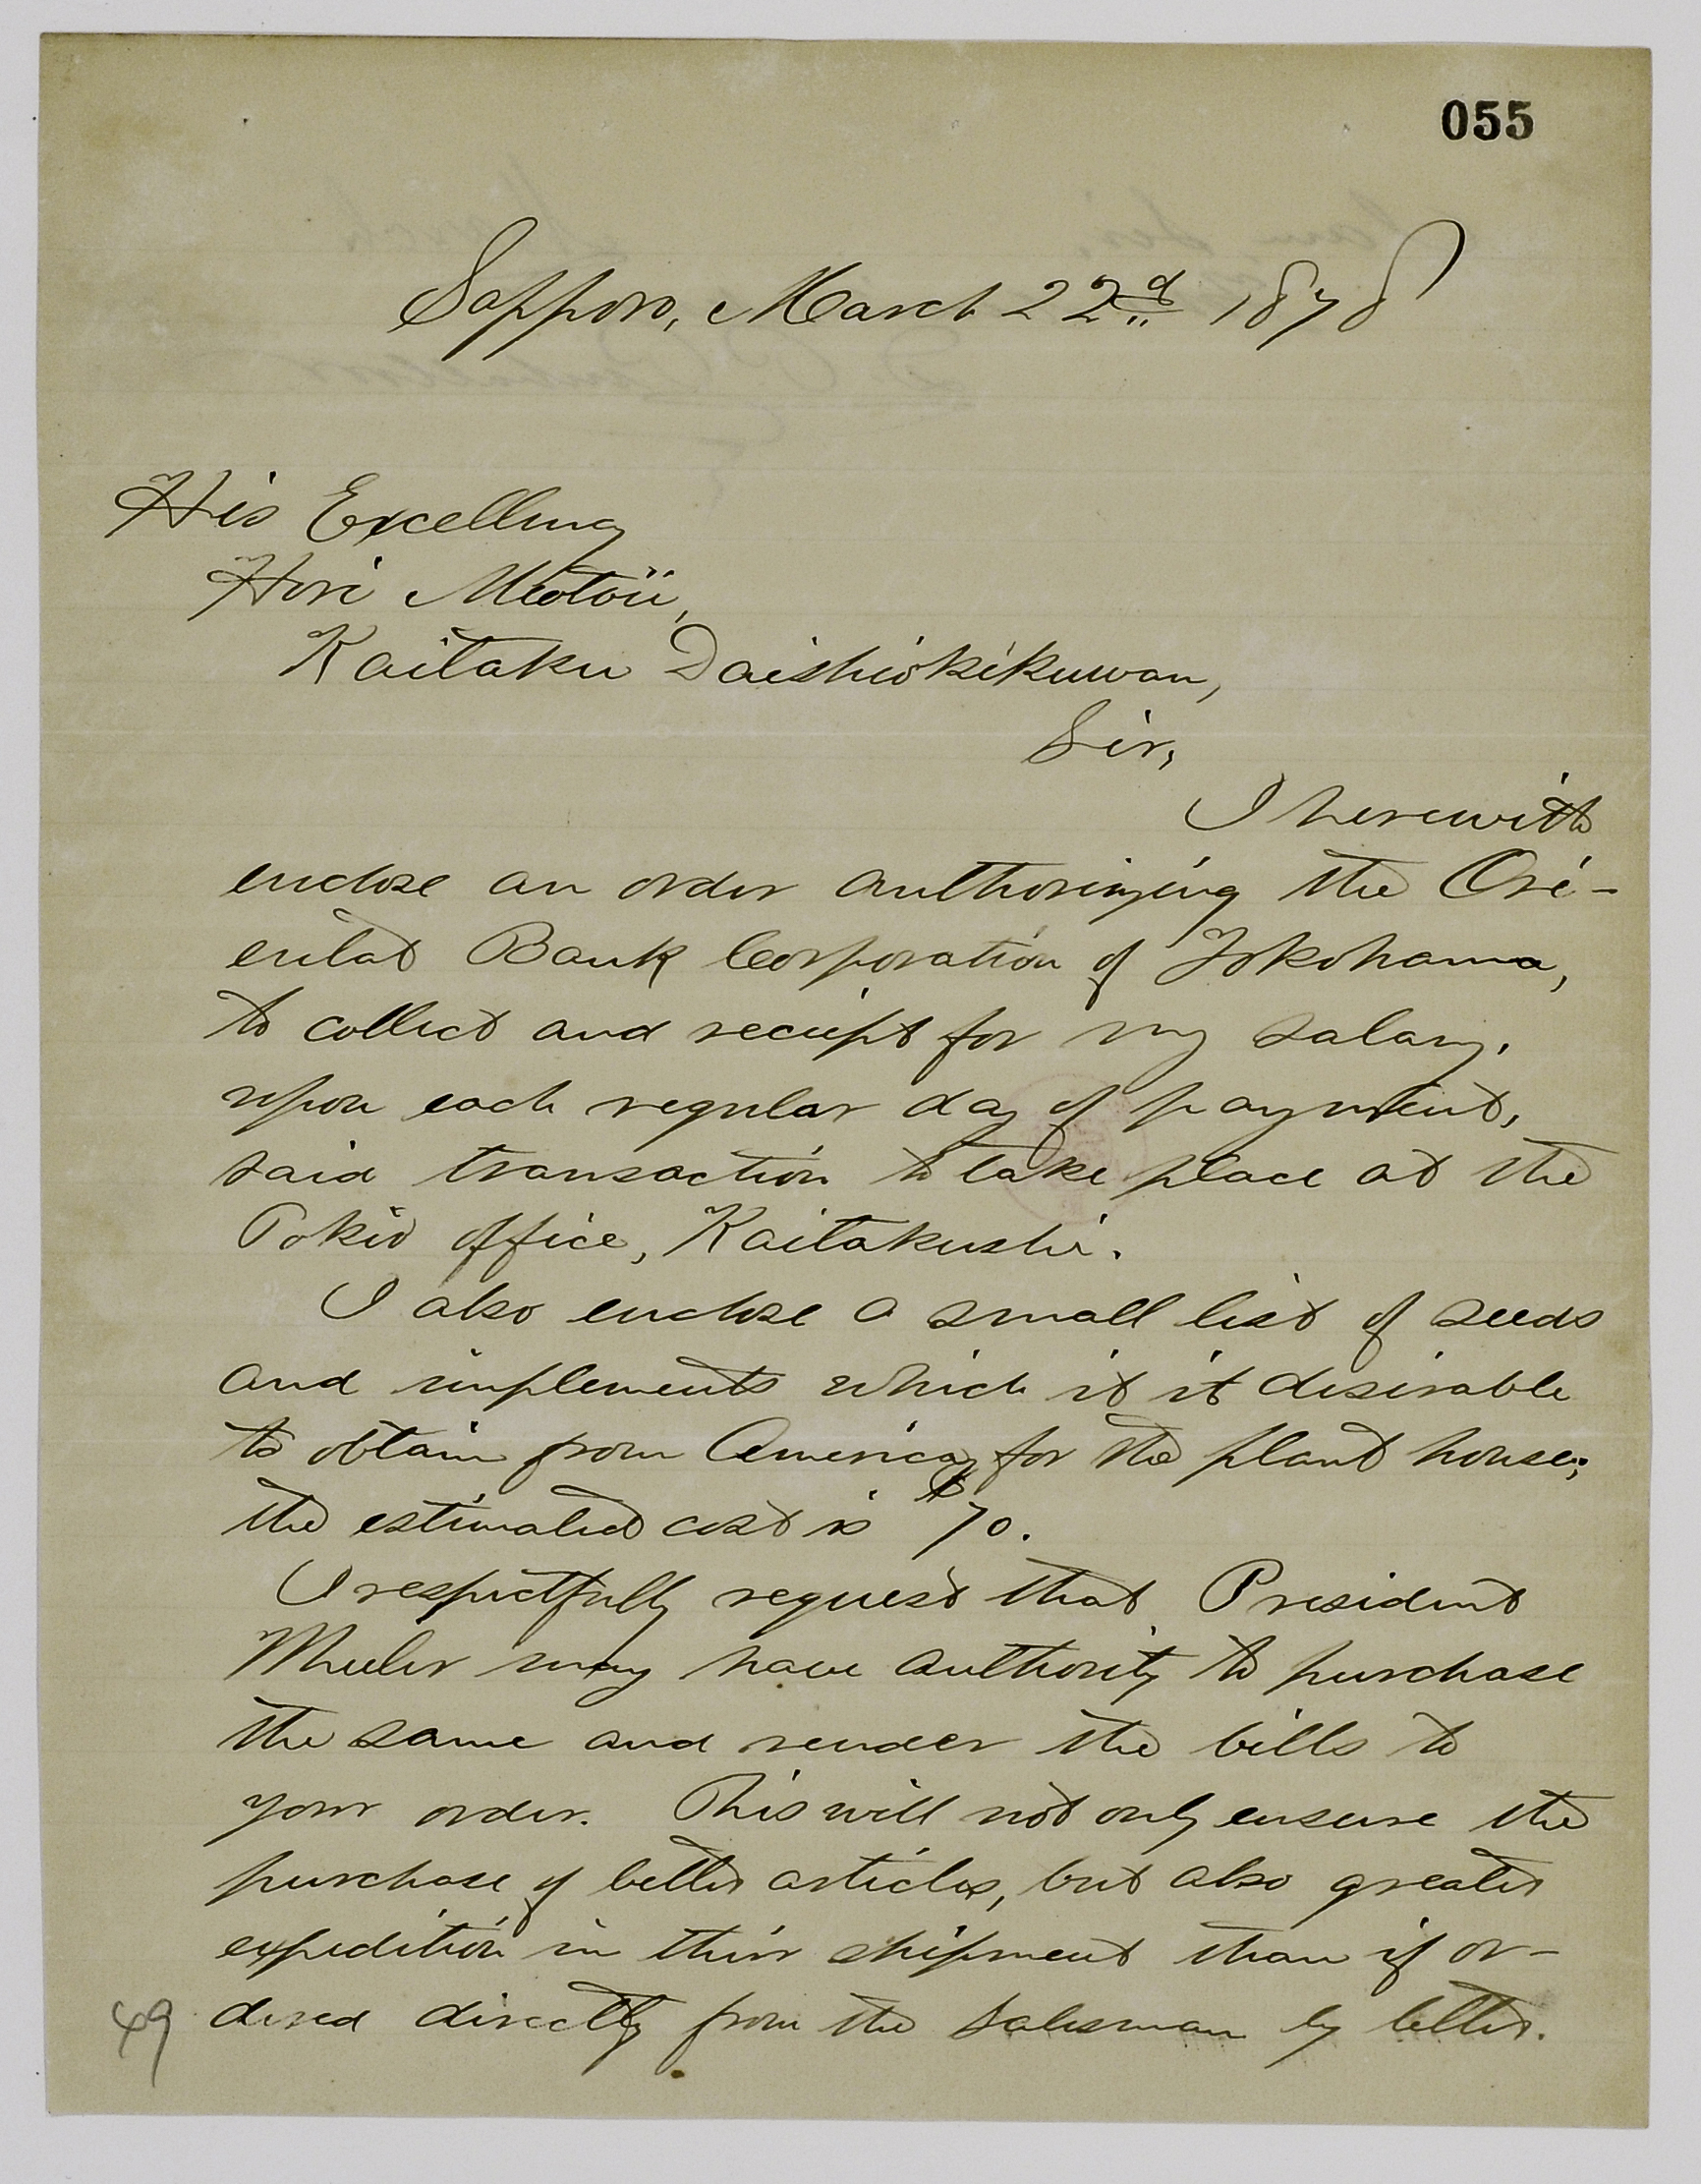 055
Sapporo, March 22d 1878
His Excellency
Hori Miotoii,
Kaitaku Daishiokikuwan,
Sir,
I herewith
enclose an order authorizing the Ori-
ental Bank Corporation of Yokohama,
to collect and receipt for my salary,
upon each regular day of payment,
said transaction to take place at the
Tokio office, Kaitakushi.
I also enclose a small list of seeds
and implements which it it desirable
to obtain from America, for the plant house;
the estimated cost is $70.
I respectfully request that President
Wheeler may have authority to purchase
the same and render the bills to
your order. This will not only ensure the
purchase of better articles, but also greater
expedition in their shipment than if or-
dered directly from the salesman by letter.
49